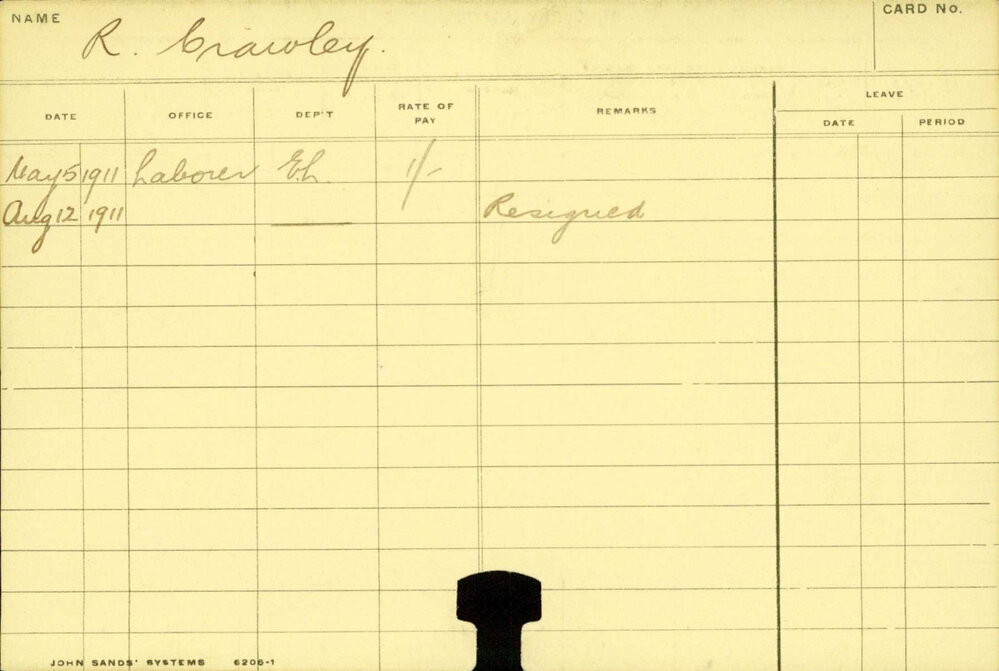 NAME R. Crawley. CARD No.
DATE OFFICE DEP'T RATE OF PAY REMARKS LEAVE
DATE PERIOD
May 5 1911 Laborer E.L. 1/-
Aug 12 1911 Resigned
JOHN SANDS' SYSTEMS 6206-1